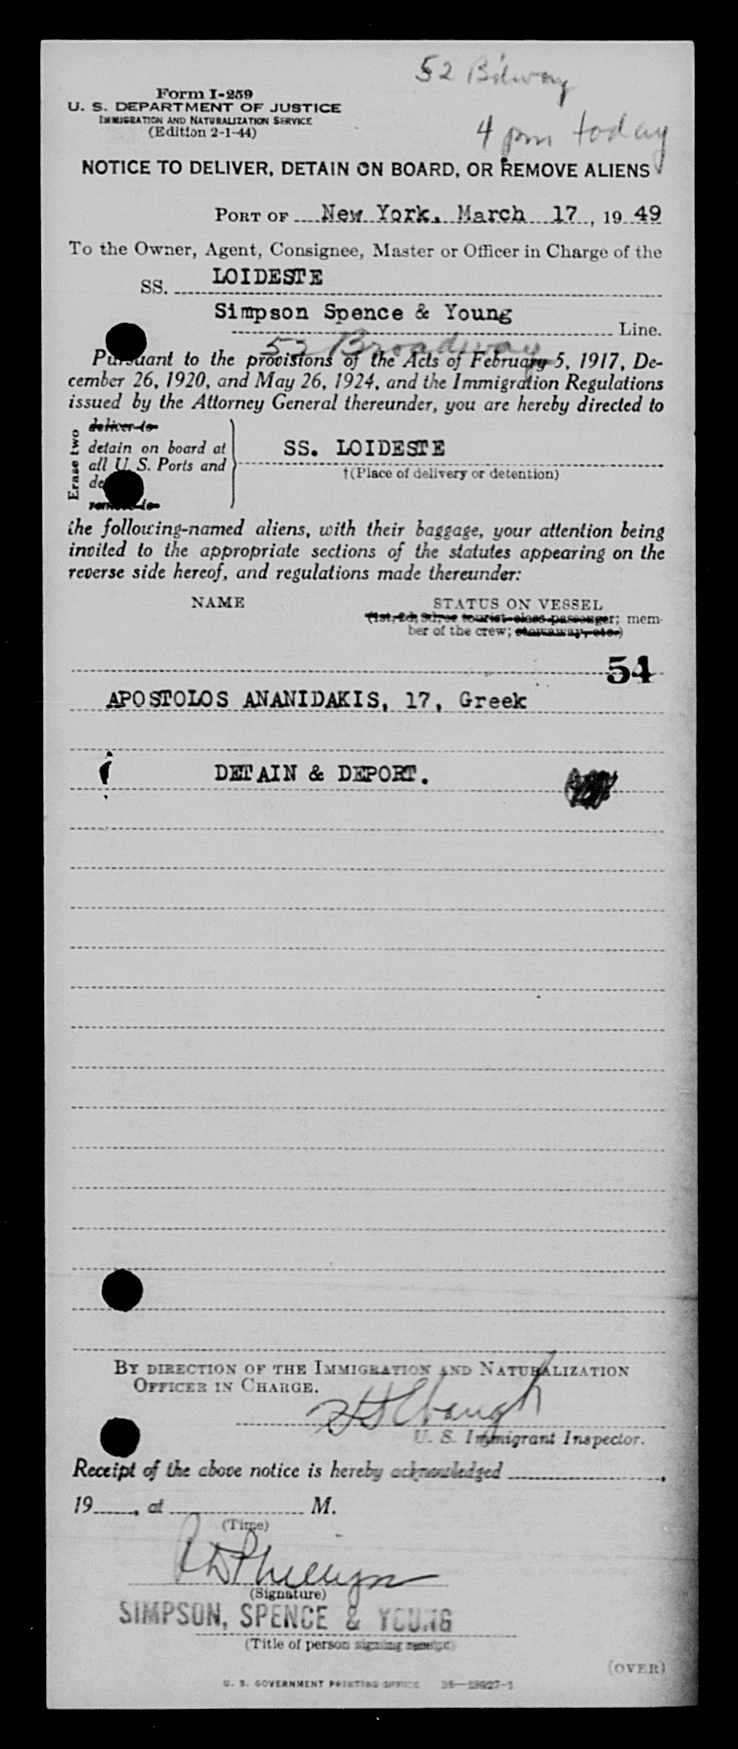 52 Bdway
4 pm today
Form I-259
U. S. DEPARTMENT OF JUSTICE
IMMIGRATION AND NATURALIZATION SERVICE
(Edition 2-1-44)
NOTICE TO DELIVER, DETAIN ON BOARD, OR REMOVE ALIENS
PORT OF New York, March 17, 1949
To the Owner, Agent, Consignee, Master or Officer in Charge of the
SS. LOIDESTE
Simpson Spence & Young Line.
52 Broadway
Pursuant to the provisions of the Acts of February 5, 1917, De-
cember 26, 1920, and May 26, 1924, and the Immigration Regulations
issued by the Attorney General thereunder, you are hereby directed to
Erase two
deliver to
detain on board at
all U. S. Ports and
remove to
SS. LOIDESTE
†(Place of delivery or detention)
the following-named aliens, with their baggage, your attention being
invited to the appropriate sections of the statutes appearing on the
reverse side hereof, and regulations made thereunder:
NAME STATUS ON VESSEL
(1st, 2d, 3d, or tourist-class passenger; mem-
ber of the crew; stowaway, etc.)
54
APOSTOLOS ANANIDAKIS, 17, Greek
DETAIN & DEPORT.
BY DIRECTION OF THE IMMIGRATION AND NATURALIZATION
OFFICER IN CHARGE.
U. S. Immigrant Inspector.
Receipt of the above notice is hereby acknowledged
19 , at M.
(Time)
(Signature)
SIMPSON, SPENCE & YOUNG
(Title of person signing receipt)
(OVER)
U. S. GOVERNMENT PRINTING OFFICE